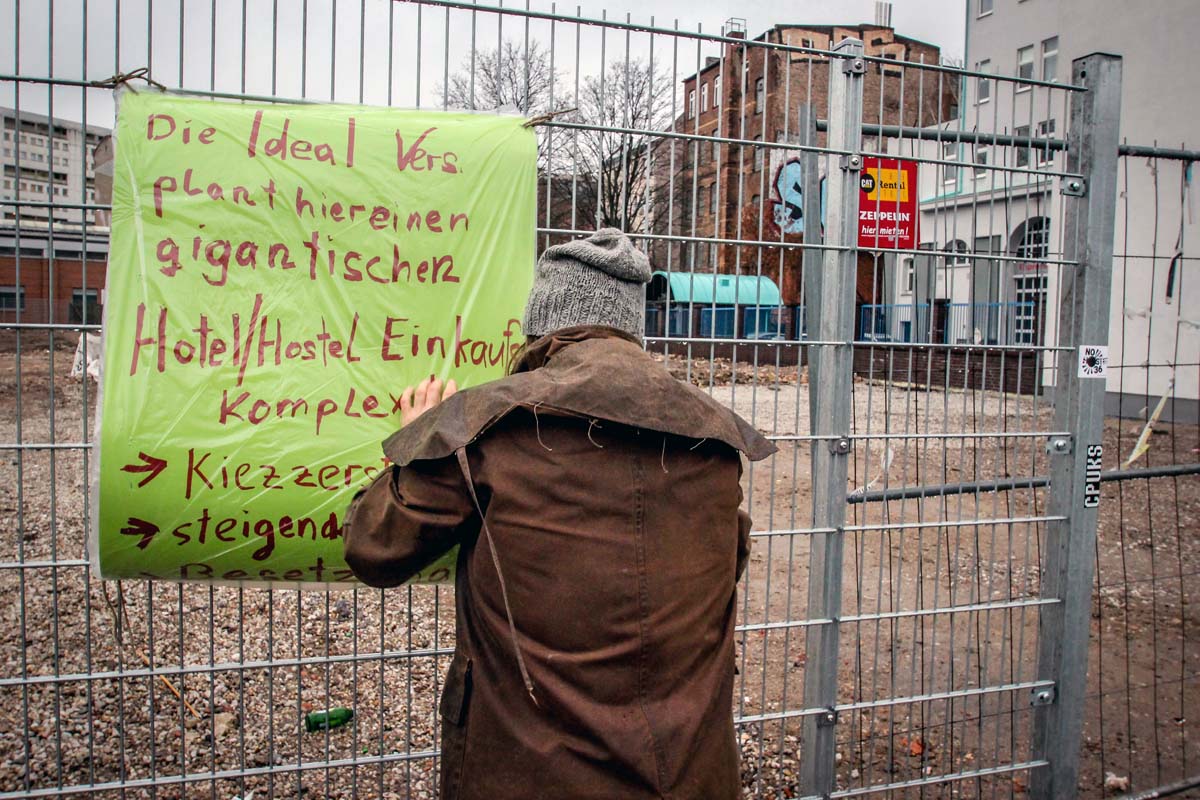 Die Ideal Vers.
plant hier einen
gigantischen
Hotel/Hostel Einkaufs
Komplex
→ Kiezzerst
→ steigend
CAT Rental
ZEPPELIN
hier mieten!
NO
36
CPUKS